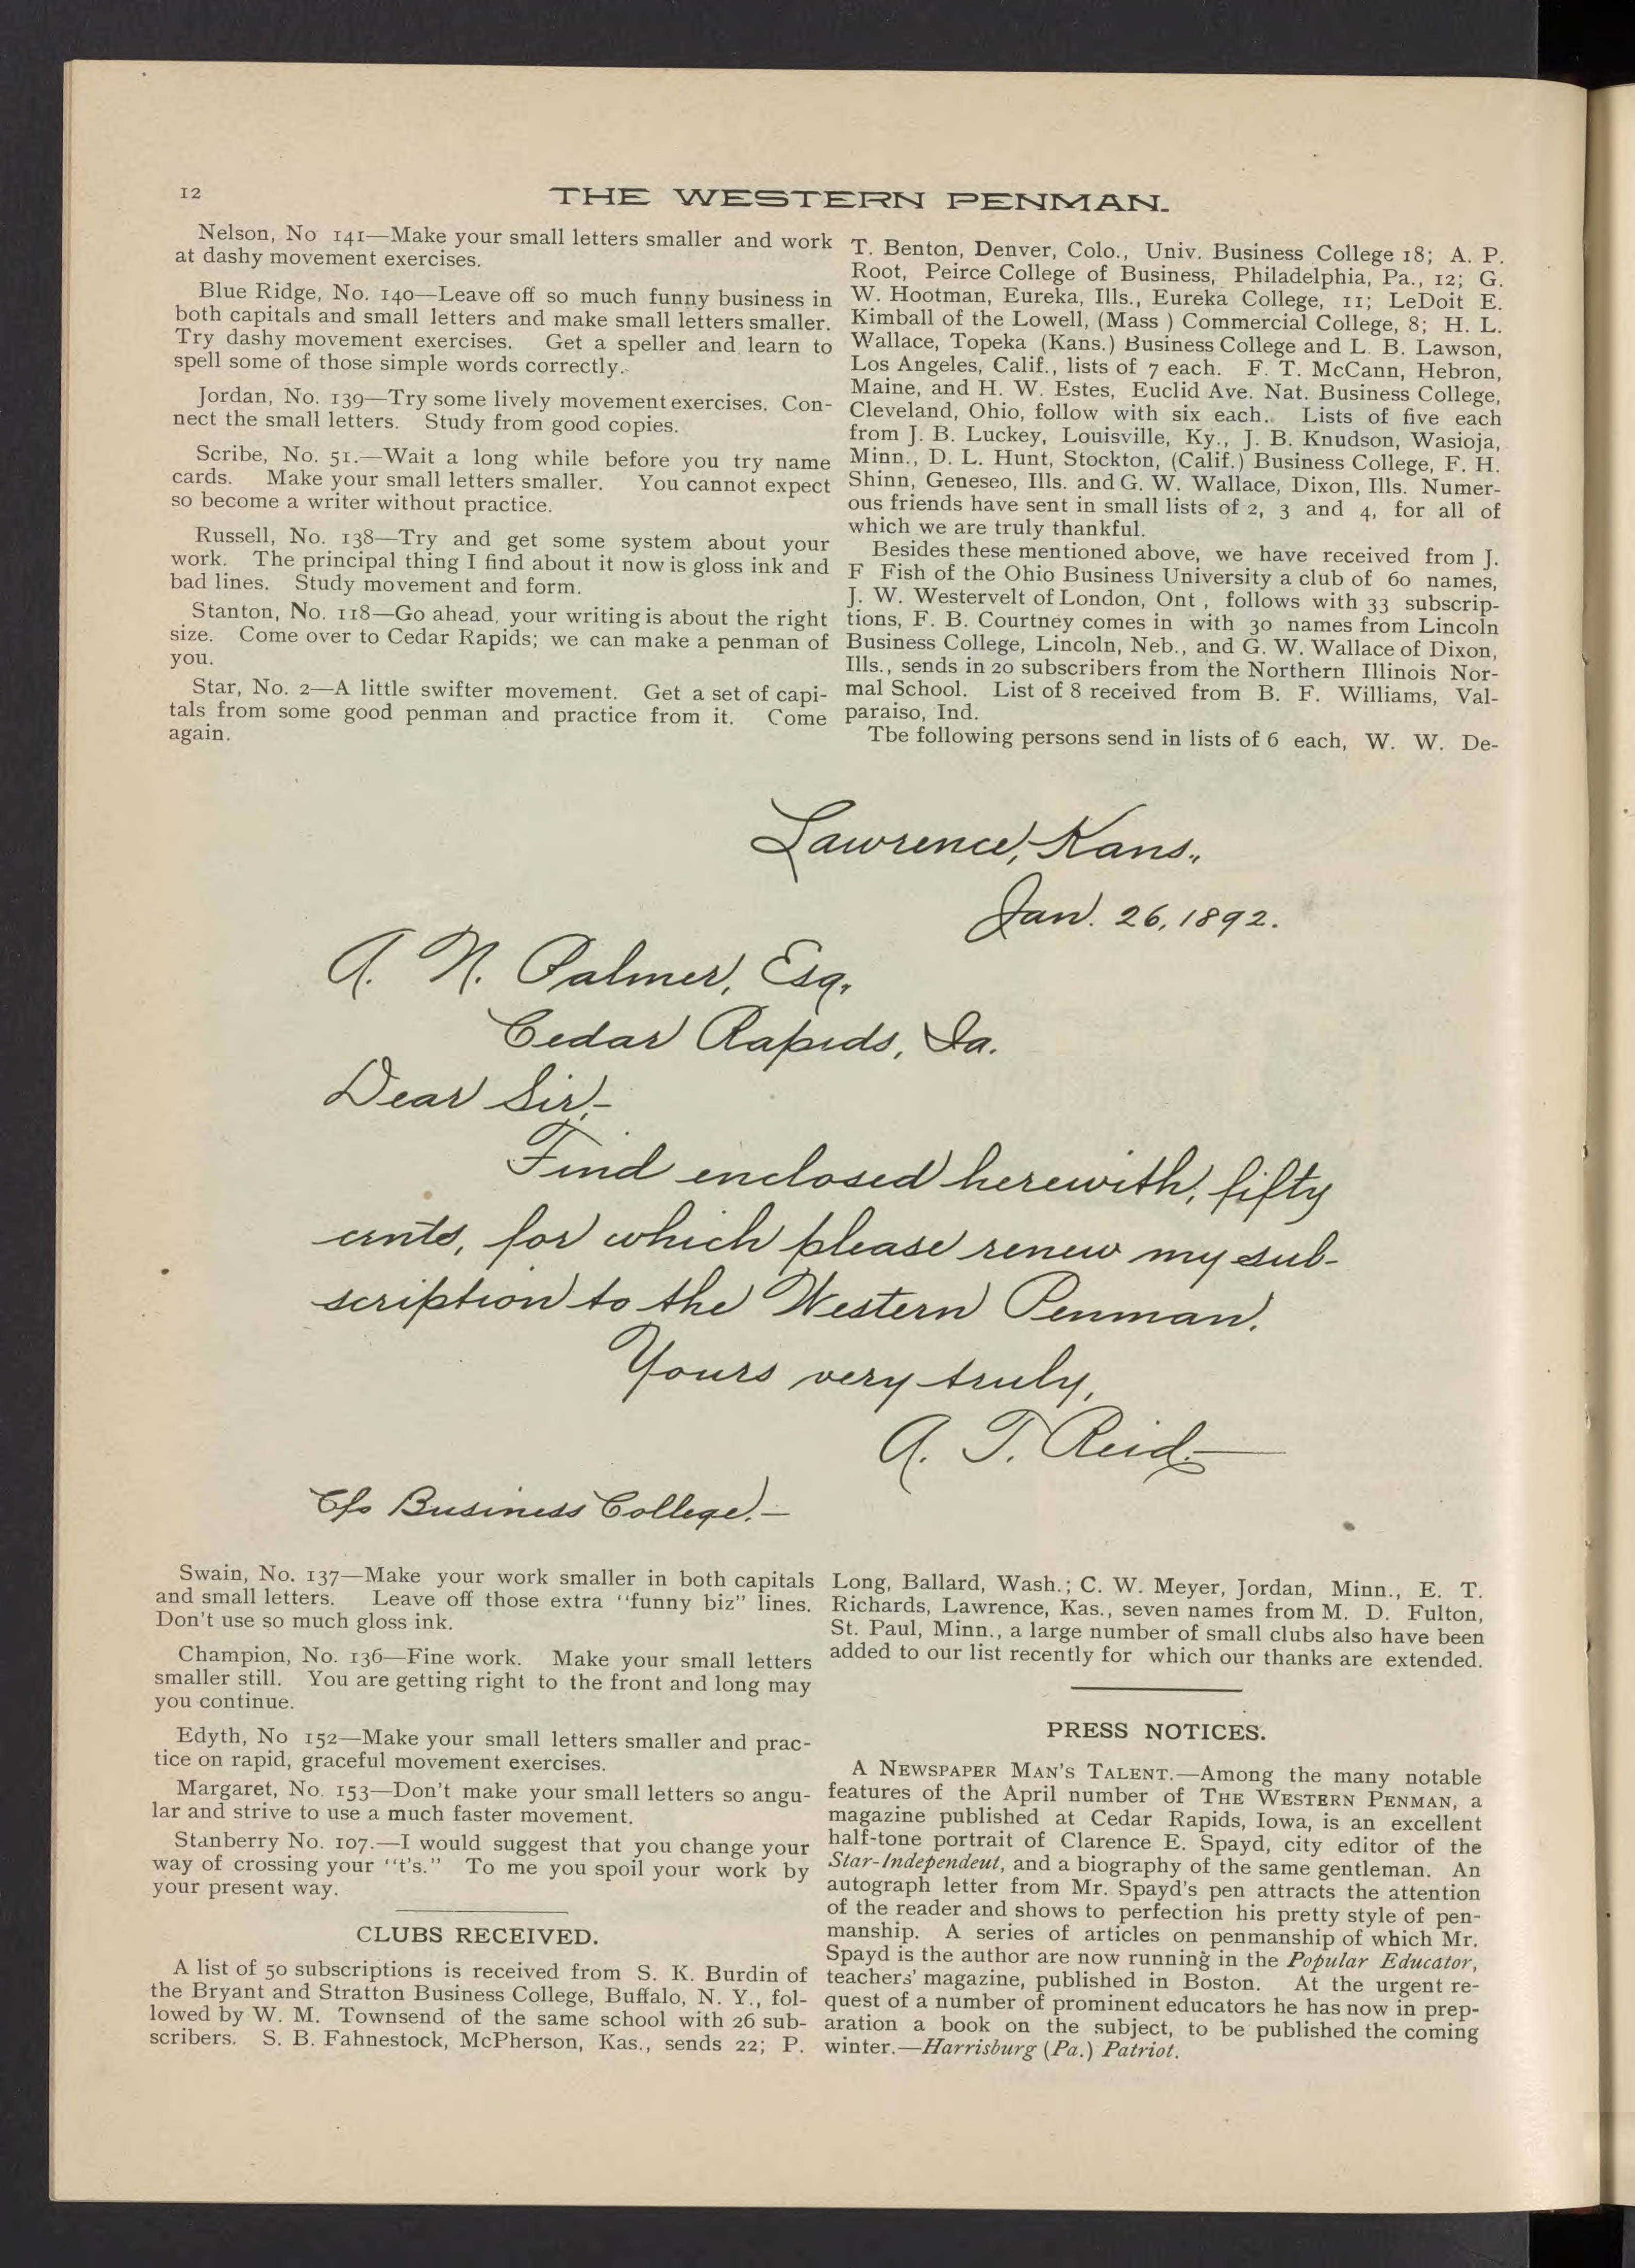 12
THE WESTERN PENMAN.
Nelson, No 141—Make your small letters smaller and work
at dashy movement exercises.
Blue Ridge, No. 140—Leave off so much funny business in
both capitals and small letters and make small letters smaller.
Try dashy movement exercises. Get a speller and learn to
spell some of those simple words correctly.
Jordan, No. 139—Try some lively movement exercises. Con-
nect the small letters. Study from good copies.
Scribe, No. 51.—Wait a long while before you try name
cards. Make your small letters smaller. You cannot expect
so become a writer without practice.
Russell, No. 138—Try and get some system about your
work. The principal thing I find about it now is gloss ink and
bad lines. Study movement and form.
Stanton, No. 118—Go ahead, your writing is about the right
size. Come over to Cedar Rapids; we can make a penman of
you.
Star, No. 2—A little swifter movement. Get a set of capi-
tals from some good penman and practice from it. Come
again.
T. Benton, Denver, Colo., Univ. Business College 18; A. P.
Root, Peirce College of Business, Philadelphia, Pa., 12; G.
W. Hootman, Eureka, Ills., Eureka College, 11; LeDoit E.
Kimball of the Lowell, (Mass ) Commercial College, 8; H. L.
Wallace, Topeka (Kans.) Business College and L. B. Lawson,
Los Angeles, Calif., lists of 7 each. F. T. McCann, Hebron,
Maine, and H. W. Estes, Euclid Ave. Nat. Business College,
Cleveland, Ohio, follow with six each. Lists of five each
from J. B. Luckey, Louisville, Ky., J. B. Knudson, Wasioja,
Minn., D. L. Hunt, Stockton, (Calif.) Business College, F. H.
Shinn, Geneseo, Ills. and G. W. Wallace, Dixon, Ills. Numer-
ous friends have sent in small lists of 2, 3 and 4, for all of
which we are truly thankful.
Besides these mentioned above, we have received from J.
F Fish of the Ohio Business University a club of 60 names,
J. W. Westervelt of London, Ont , follows with 33 subscrip-
tions, F. B. Courtney comes in with 30 names from Lincoln
Business College, Lincoln, Neb., and G. W. Wallace of Dixon,
Ills., sends in 20 subscribers from the Northern Illinois Nor-
mal School. List of 8 received from B. F. Williams, Val-
paraiso, Ind.
Tbe following persons send in lists of 6 each, W. W. De-
Lawrence, Kans.,
Jan. 26, 1892.
A. N. Palmer, Esq.,
Cedar Rapids, Ia.
Dear Sir,–
Find enclosed herewith, fifty
cents, for which please renew my sub-
scription to the Western Penman.
Yours very truly,
A. T. Reid.
C/o Business College.–
Swain, No. 137—Make your work smaller in both capitals
and small letters. Leave off those extra "funny biz" lines.
Don't use so much gloss ink.
Champion, No. 136—Fine work. Make your small letters
smaller still. You are getting right to the front and long may
you continue.
Edyth, No 152—Make your small letters smaller and prac-
tice on rapid, graceful movement exercises.
Margaret, No. 153—Don't make your small letters so angu-
lar and strive to use a much faster movement.
Stanberry No. 107.—I would suggest that you change your
way of crossing your "t's." To me you spoil your work by
your present way.
CLUBS RECEIVED.
A list of 50 subscriptions is received from S. K. Burdin of
the Bryant and Stratton Business College, Buffalo, N. Y., fol-
lowed by W. M. Townsend of the same school with 26 sub-
scribers. S. B. Fahnestock, McPherson, Kas., sends 22; P.
Long, Ballard, Wash.; C. W. Meyer, Jordan, Minn., E. T.
Richards, Lawrence, Kas., seven names from M. D. Fulton,
St. Paul, Minn., a large number of small clubs also have been
added to our list recently for which our thanks are extended.
PRESS NOTICES.
A NEWSPAPER MAN'S TALENT.—Among the many notable
features of the April number of THE WESTERN PENMAN, a
magazine published at Cedar Rapids, Iowa, is an excellent
half-tone portrait of Clarence E. Spayd, city editor of the
Star-Independeut, and a biography of the same gentleman. An
autograph letter from Mr. Spayd's pen attracts the attention
of the reader and shows to perfection his pretty style of pen-
manship. A series of articles on penmanship of which Mr.
Spayd is the author are now running in the Popular Educator,
teachers' magazine, published in Boston. At the urgent re-
quest of a number of prominent educators he has now in prep-
aration a book on the subject, to be published the coming
winter.—Harrisburg (Pa.) Patriot.